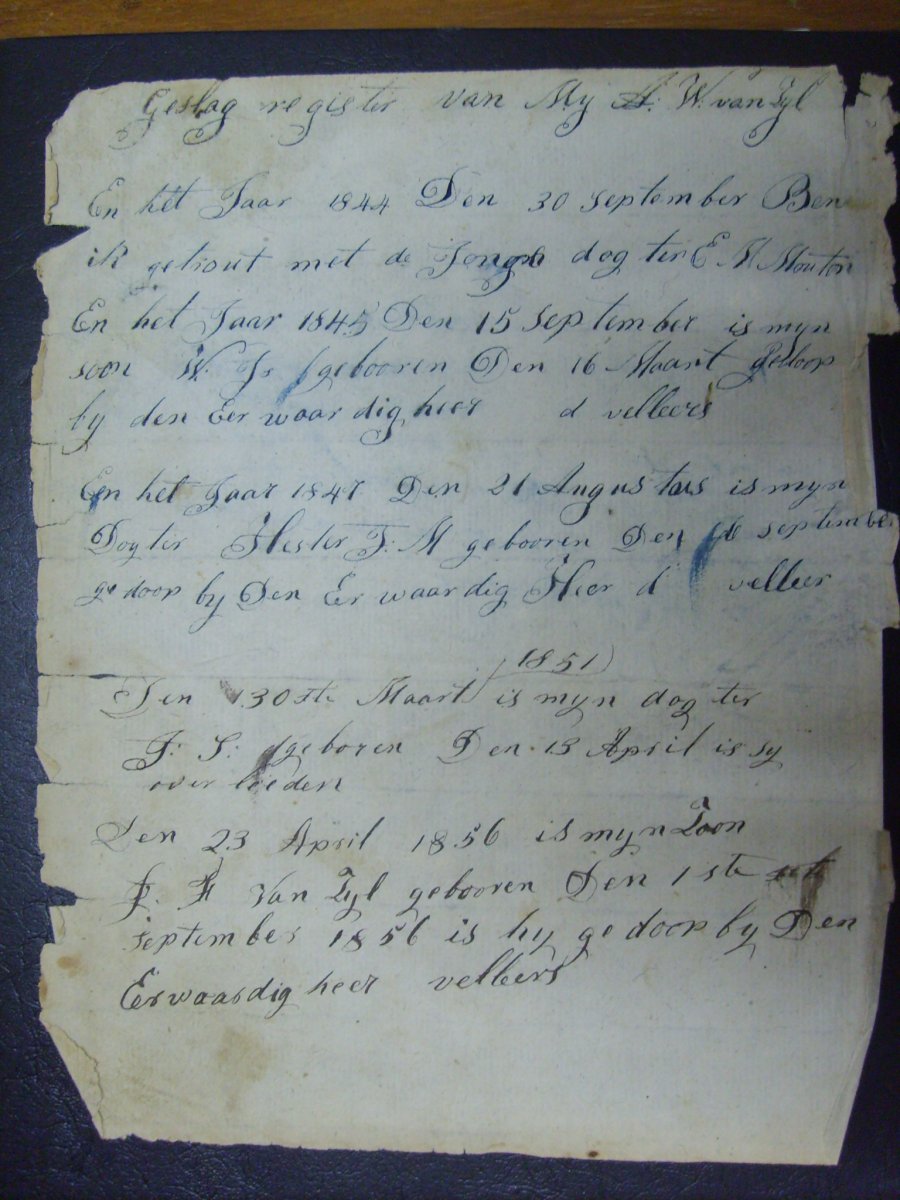 Geslag register van My A: W. van Zyl
En het Jaar 1844 Den 30 september Ben
ik getrout met de Jonge dogter E M Mouton
En het Jaar 1845 Den 15 september is myn
soon W. Js gebooren Den 16 Maart gedoop
by den Eerwaardig heer d velleers
En het Jaar 1847 Den 21 Augustus is myn
Dogter Hester F: M gebooren Den september
gedoop by Den Eerwaardig Heer d velleer
1851
Den 30ste Maart is myn dogter
J: S: geboren Den 13 April is sy
over leeden
Den 23 April 1856 is myn Zoon
P. F van Zyl gebooren Den 1ste
september 1856 is hy gedoop by Den
Eerwaardig heer velleers